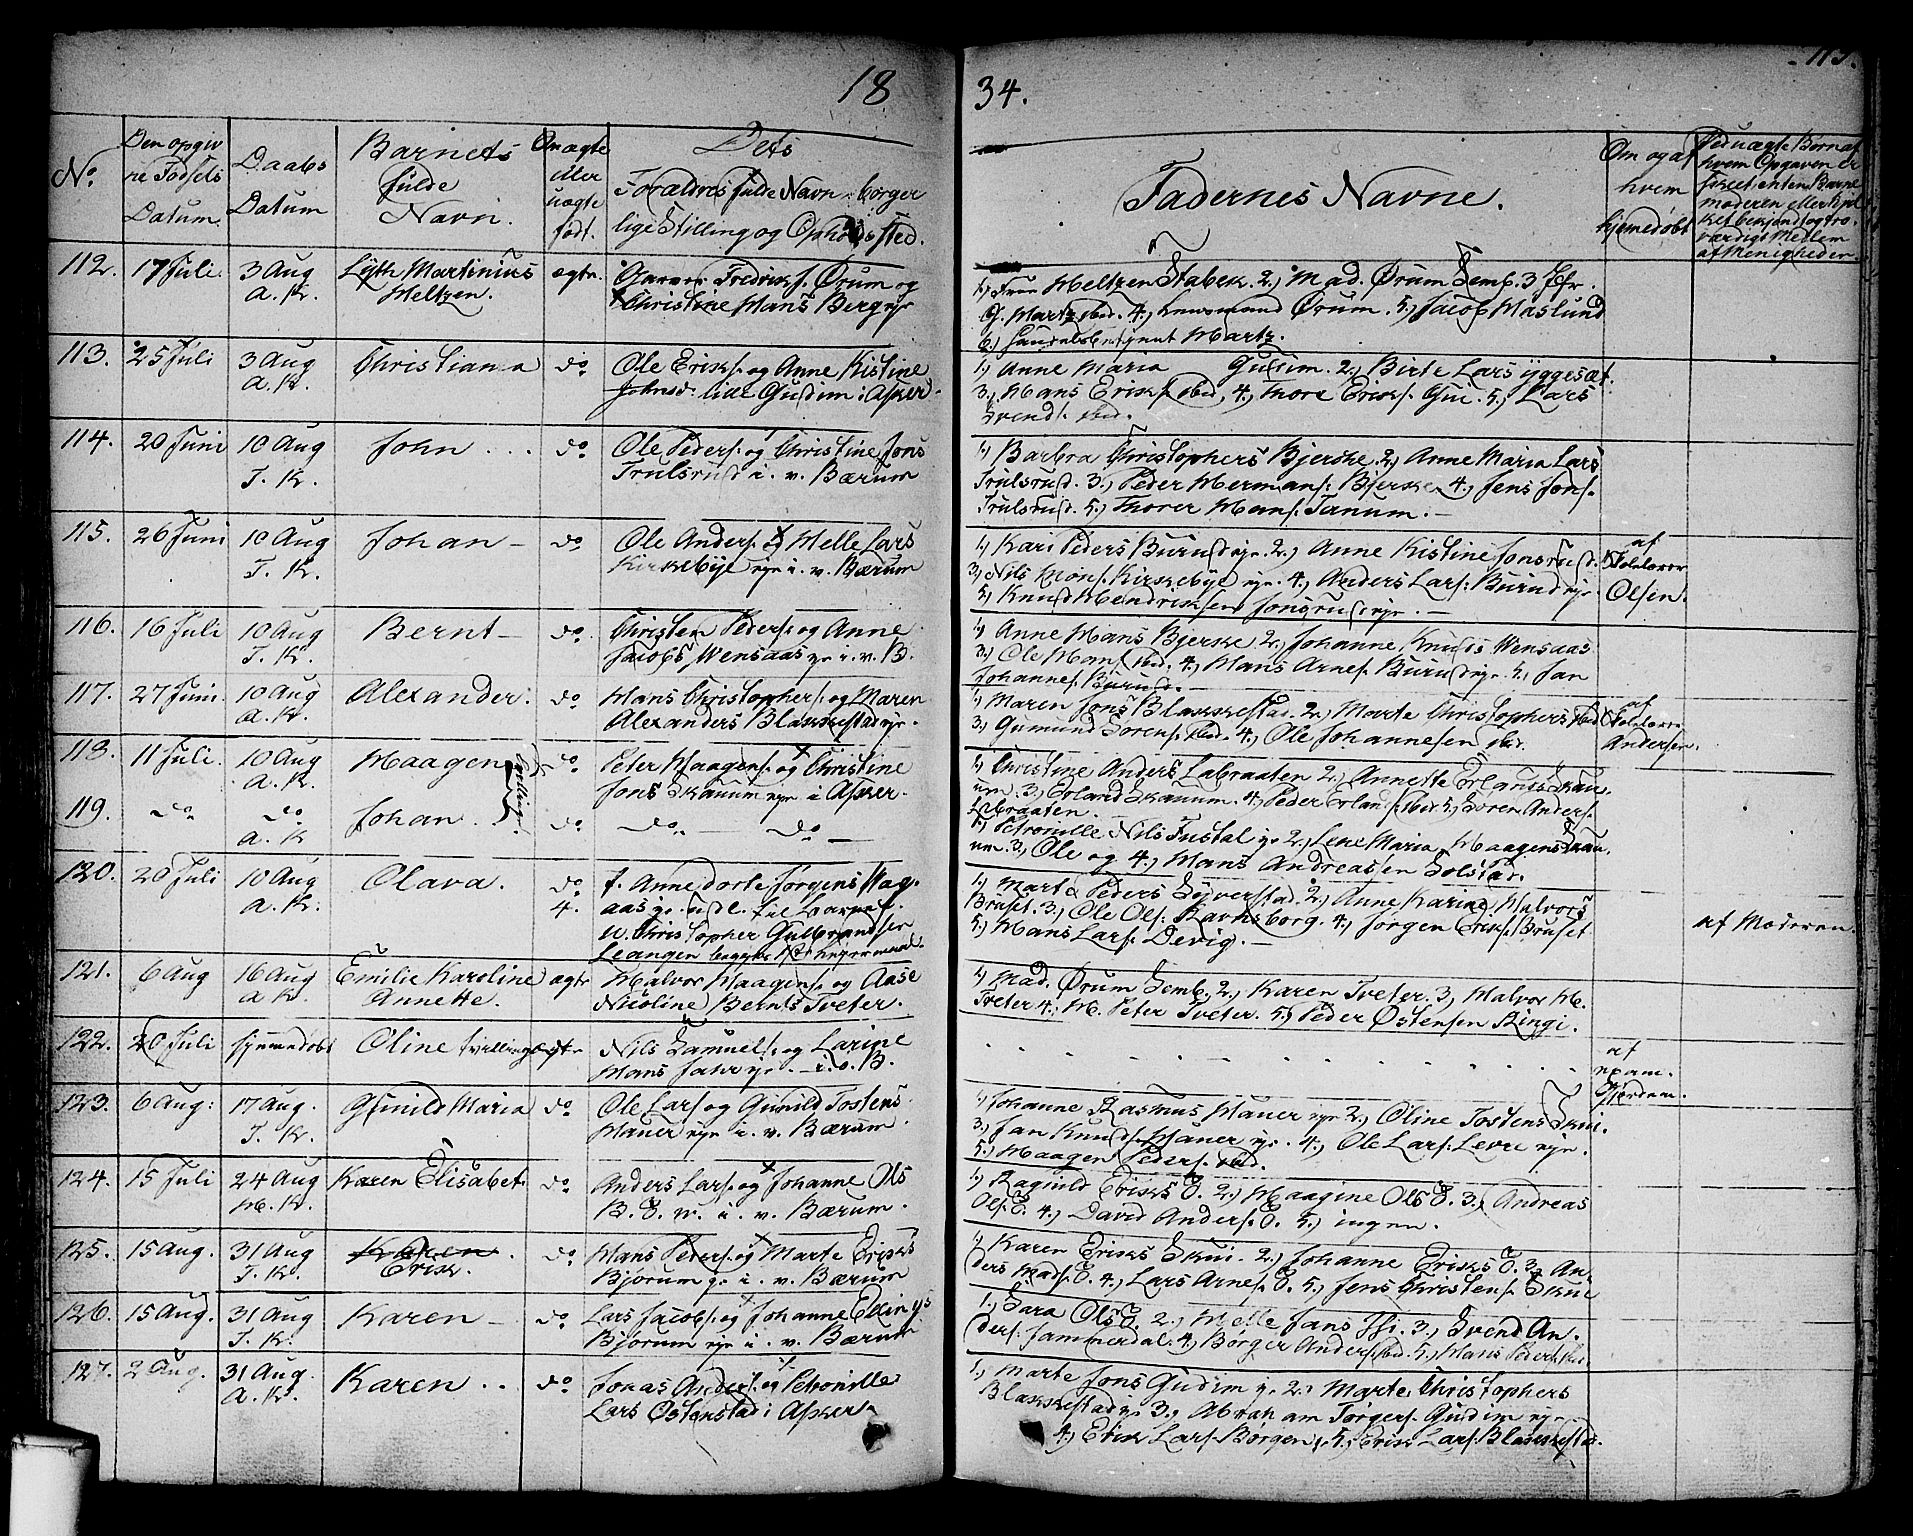 18
34.
No.
Den opgiv
ne Fødsels
Datum.
Daabs
Datum
Barnets
fulde
Navn.
Om ægte
eller
uægte
født.
Dets
Forældres fulde Navn, borger
lige Stilling og Opholdssted.
Faddernes Navne.
Om og af
hvem
hjemedøbt
Ved uægte Børn af
hvem Opgaven er
skeet enten Barne
moderen eller hvil
ket bekjendt og tro
værdigt Medlem
af Menigheden.
112. 17 Juli. 3 Aug Lyth Martinius ægte.
A. K. Meltzen.
Fredrik Ørum og
Christine Hans Berg
1, Frue Meltzen Stabek. 2, Mad. Ørum Semb. 3 Jfr.
G. Martz ibid. 4, Lensmand Ørum. 5, Jacob Haslund
6, Handelsbetjent Martz.
113. 25 Juli 3 Aug Christiana do.
A. K.
Ole Eriks. og Anne Kistine
Johnsd. Lille Gudim i Asker.
1, Anne Maria Gudim. 2, Birte Lars yggesæt.
3, Hans Eriks. ibid, 4, Thore Eriks. Gui. 5, Lars
Svends. ibid.
114. 20 Juni 10 Aug John ... do.
T. K.
Ole Peders. og Christine Jons
Trulsrud i. v. Bærum
1, Barbra Christophers Bjerke. 2, Anne Maria Lars
Trulsrud. 3, Peder Hermans. Bjerke, 4, Jens Jons.
Trulsrud. 5, Thorer Hans. Tanum. -
115. 26 Juni 10 Aug Johan - do.
T. K.
Ole Anders. og Helle Lars
Kirkebye eje i. v. Bærum
1, Kari Peders Burud eje. 2, Anne Kistine Jonsrud.
3, Nils Kirkebye eje. 4, Anders Lars. Burud eje.
5, Knud Hendriksen Jonsrud eje. -
af
Skolelærer
Olsen.
116. 16 Juli 10 Aug Bernt - do.
T. K.
Christen Peders. og Anne
Jacobs Wensaas eje i. v. B.
1, Anne Hans Bjerke 2, Johanne Knuds Wensaas
3, Ole Hans. ibid. 4, Hans Arnes. Burud eje. 5, Jan
Johannes. Burud.
117. 27 Juni. 10 Aug Alexander. do.
A. K.
Hans Christophers. og Maren
Alexanders Blakkestad eje.
1, Maren Jons Blakkestad. 2, Marte Christophers ibid
3, Gumund Sørens. ibid. 4, Ole Johannesen ibid.
af
Skolelærer
Andersen.
118. 11 Juli. 10 Aug Haagen do.
A. K.
Tvillinger
Peter Haagens. og Christine
Jons Skauum eje i Asker.
1, Christine Anders Labraaten 2, Annette Erlands Skau
um. 3, Erland Skauum. 4, Peder Erlands. ibid 5, Soren Anders.
Labraaten.
119. do do Johan. do.
A. K
do. - do -
1, Petronille Nils Fustal eje 2, Lene Maria Haagens Skau
um. 3, Ole og 4, Hans Andreassen Solstad.
120. 20 Juli 10 Aug Olava. do.
A. K. 4.
f. Anne Dorte Jørgens
aas eje. udl. til Barnef.
U. Christopher Gulbrandsen
Leangen begges 1ste Leiermaal.
1, Marte Peders Syverstad. 2, Anne Karine Halvors
Bruset. 3, Ole Ols. Ravnsborg. 4, Jørgen Eriks. Bruset
5, Hans Lars. Devig. -
af Moderen.
121. 6 Aug 16 Aug Emilie Karoline ægte
A K. Annette.
Halvor Haagens. og Aase
Nicoline Bernts Tveter.
1, Mad. Ørum Semb. 2, Karen Tveter. 3, Halvor H.
Tveter 4, H. Peter Tveter. 5, Peder Østensen Ringi.
122. 20 Juli hjemedøbt Oline tvilling ægte
Nils Samuels. og Larine
Hans Jahr eje. - i. v. B.
af
exam.
Gjordem.
123. 6 Aug: 17 Aug. Gunild Maria do
T. K.
Ole Lars og Gunild Tostens.
Hauer eje i. v. Bærum.
1, Johanne Rasmus Hauer eje 2, Oline Tostens Skui.
3, Jan Knuds. Hauer eje. 4, Ole Lars. Levre eje.
5, Haagen Peders. ibid.
124. 15 Juli 24 Aug Karen Elisabet do.
H. K.
Anders Lars. og Johanne Ols
B. E. V. i. v. Bærum.
1, Ragnild Eriks E. 2, Haagine Ols E. 3, Andreas
Ols. E. 4, David Anders. E. 5, ingen.
125. 15 Aug. 31 Aug Karen. do.
T. K. Erik.
Hans Peders. og Marte Eriks
Bjørum eje i. v. Bærum
1, Karen Eriks Skui. 2, Johanne Eriks E. 3, An-
ders Mads. E. 4, Lars Arnes. E. 5, Jens Christens. Skui
126. 15 Aug. 31 Aug Karen - do.
T. K.
Lars Jacobs. og Johanne Edings
Bjørum eje i. v. Bærum
1, Sara Ols E. 2, Helle Jans Isi. 3, Svend An.
ders. Jammerdal. 4, Børger Anders. ibid. 5, Hans Peders.
127. 2 Aug. 31 Aug. Karen .. do
A. K.
Jonas Anders. og Petronille
Lars Østenstad i Asker
1, Marte Jons Gudim eje 2, Marte Christophers
Blakkestad eje 3, Abraham Torgers. Gudim eje.
4, Erik Lars. Borgen. 5, Erik Lars. Blakkestad.